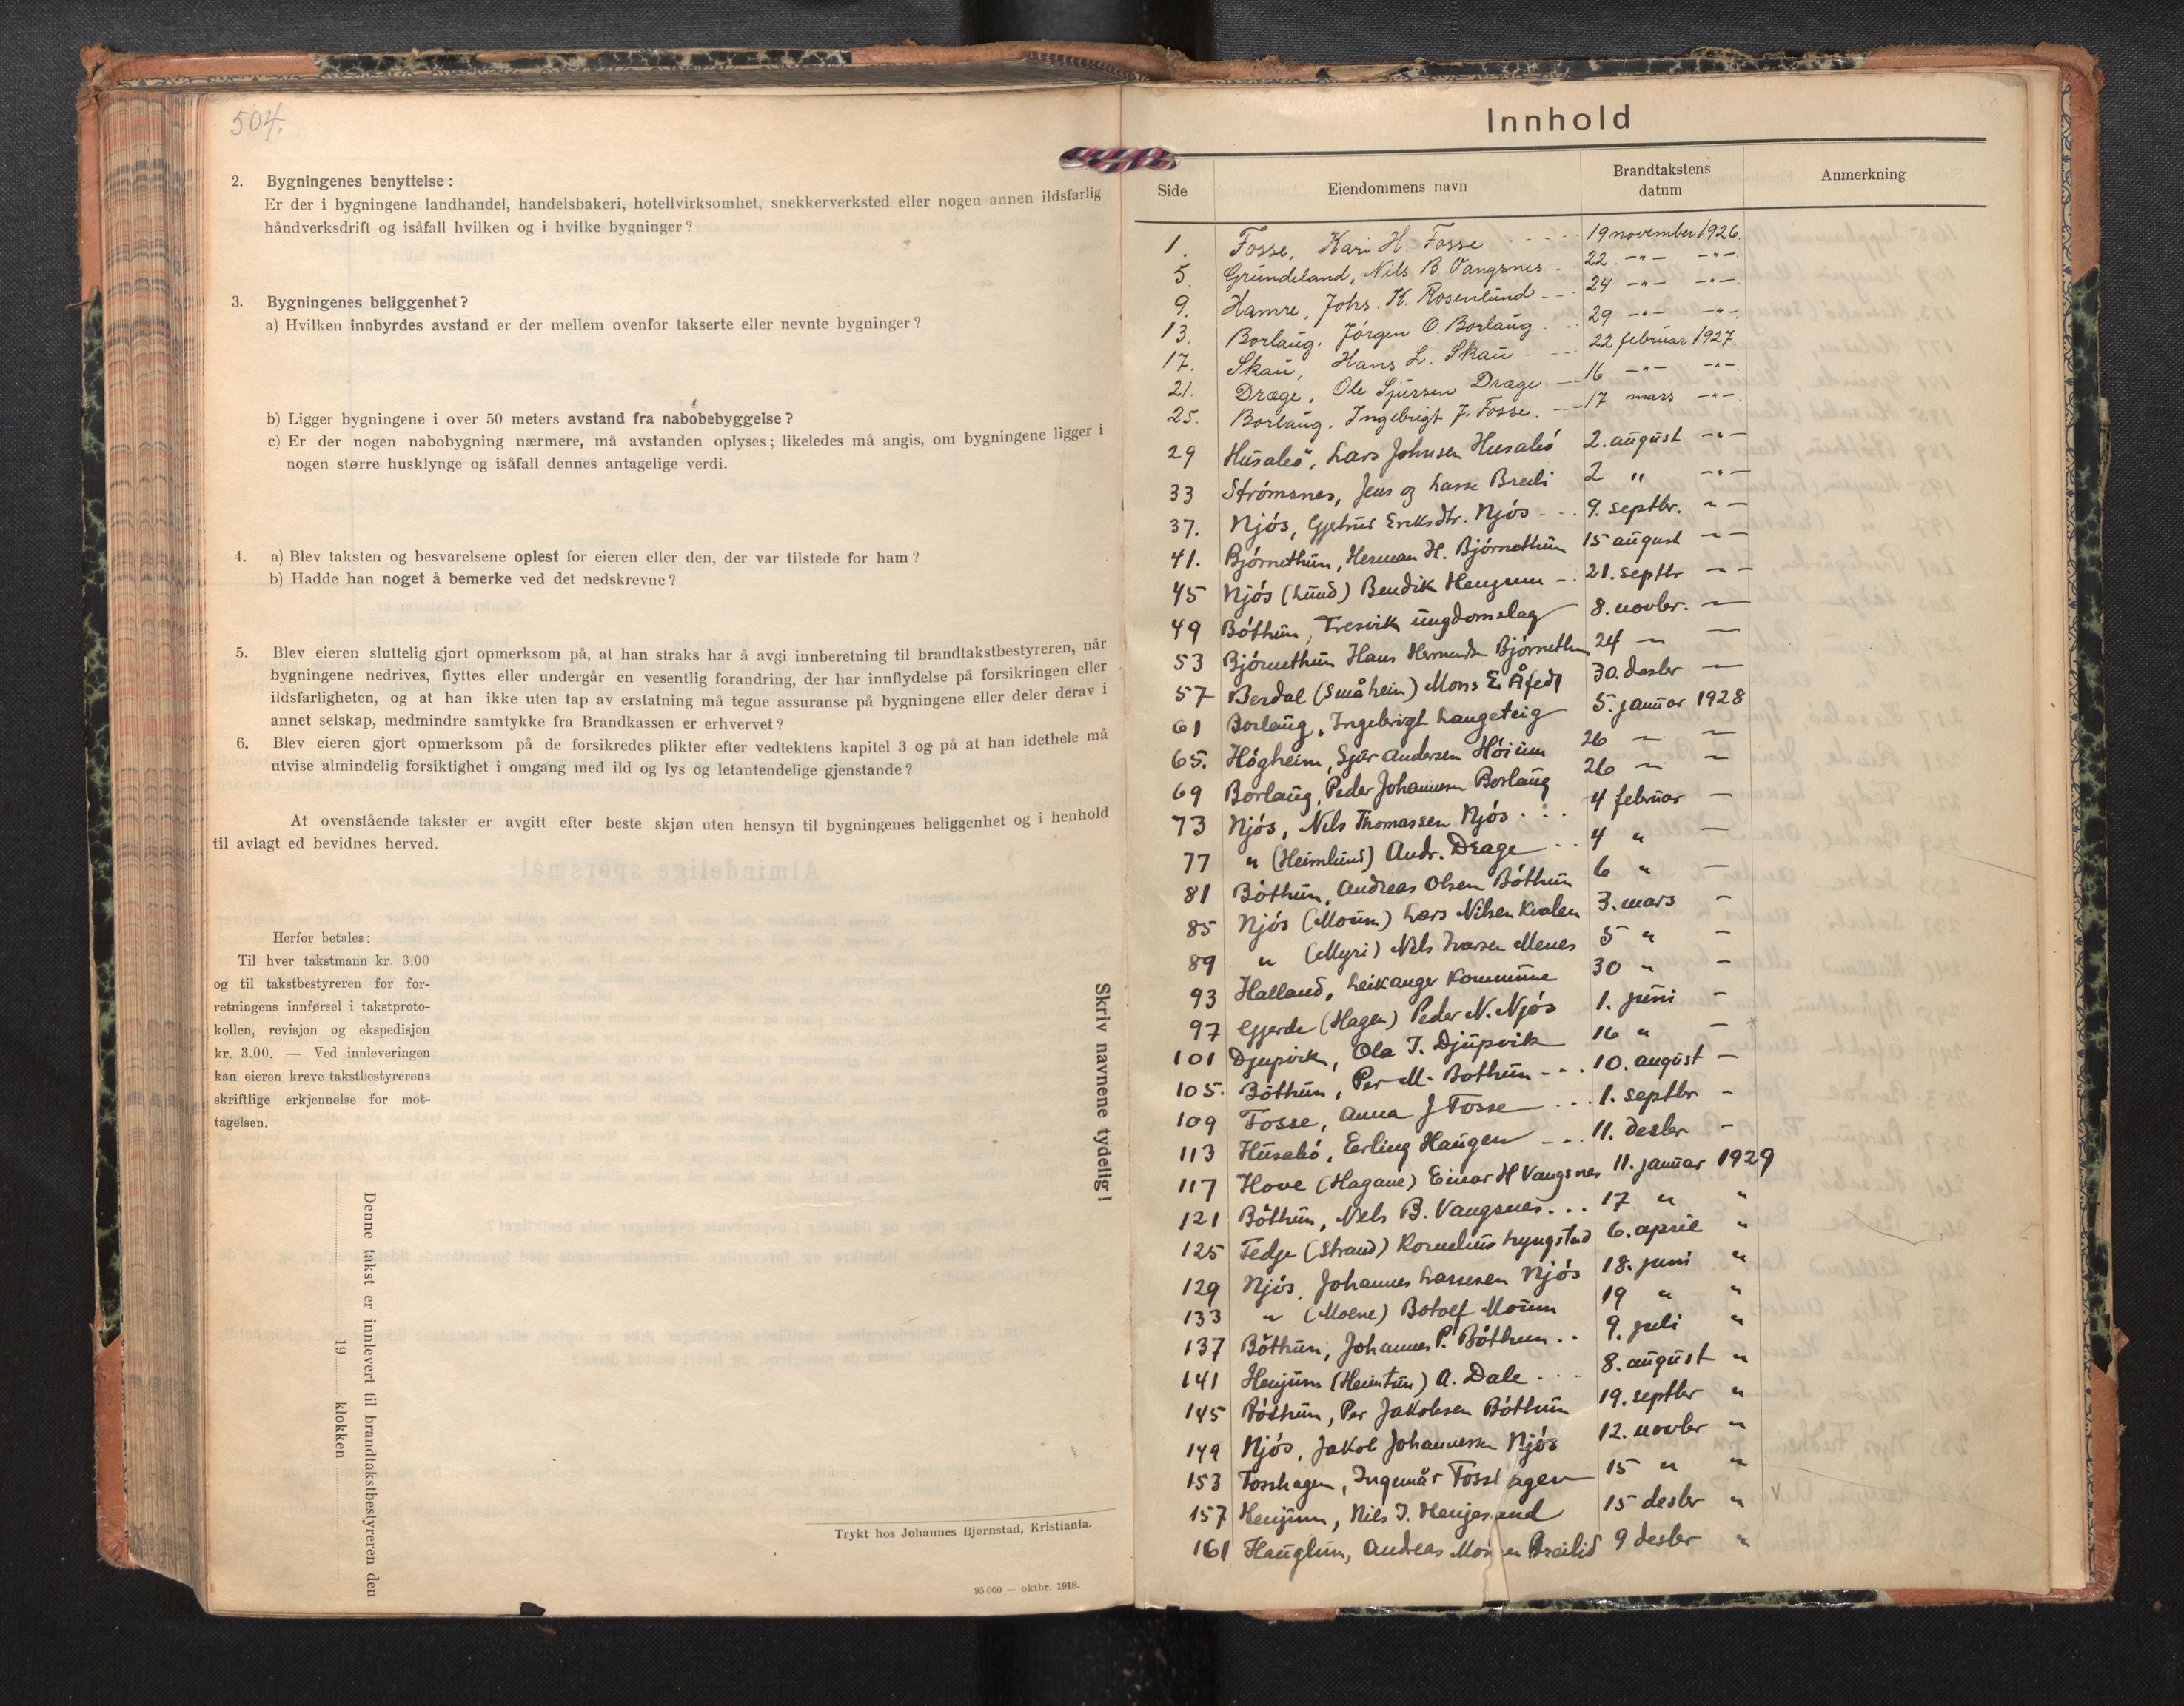 504.
2. Bygningenes benyttelse:
Er der i bygningene landhandel, handelsbakeri, hotellvirksomhet, snekkerverksted eller nogen annen ildsfarlig
håndverksdrift og isåfall hvilken og i hvilke bygninger?
3. Bygningenes beliggenhet?
a) Hvilken innbyrdes avstand er der mellem ovenfor takserte eller nevnte bygninger?
b) Ligger bygningene i over 50 meters avstand fra nabobebyggelse?
c) Er der nogen nabobygning nærmere, må avstanden oplyses; likeledes må angis, om bygningene ligger i
nogen større husklynge og isåfall dennes antagelige verdi.
4. a) Blev taksten og besvarelsene oplest for eieren eller den, der var tilstede for ham?
b) Hadde han noget å bemerke ved det nedskrevne?
5. Blev eieren sluttelig gjort opmerksom på, at han straks har å avgi innberetning til brandtakstbestyreren, når
bygningene nedrives, flyttes eller undergår en vesentlig forandring, der har innflydelse på forsikringen eller
ildsfarligheten, og at han ikke uten tap av erstatning må tegne assuranse på bygningene eller deler derav i
annet selskap, medmindre samtykke fra Brandkassen er erhvervet?
6. Blev eieren gjort opmerksom på de forsikredes plikter efter vedtektens kapitel 3 og på at han idethele må
utvise almindelig forsiktighet i omgang med ild og lys og letantendelige gjenstande?
At ovenstående takster er avgitt efter beste skjøn uten hensyn til bygningenes beliggenhet og i henhold
til avlagt ed bevidnes herved.
Herfor betales:
Til hver takstmann kr. 3.00
og til takstbestyreren for for-
retningens innførsel i takstproto-
kollen, revisjon og ekspedisjon
kr. 3.00. — Ved innleveringen
kan eieren kreve takstbestyrerens
skriftlige erkjennelse for mot-
tagelsen.
Denne takst er innlevert til brandtakstbestyreren den
19 klokken
Skriv navnene tydelig!
Trykt hos Johannes Bjørnstad, Kristiania.
95 000 — oktbr. 1918.
Innhold
Side Eiendommens navn Brandtakstens datum Anmerkning
1. Fosse, Kari H. Fosse 19 november 1926.
5. Grundeland, Nils B. Vangsnes 22 -"- -"-
9. Hamre, Johs. K. Rosenlund 24 -"- -"-
13. Borlaug, Jörgen O. Borlaug 29 -"- -"-
17. Skau, Hans L. Skau 22 februar 1927.
21. Dræge, Ole Sjursen Dræge 16 -"- -"-
25. Borlaug, Ingebrigt J. Fosse. 17 mars -"-
29 Husabö, Lars Johnsen Husabö 2. august -"-
33 Strömsnes, Jens og Lasse Breili 2 " -"-
37. Njös, Gjetrud Eriksdtr. Njös 9. septbr. -"-
41. Björnethun, Herman H. Björnethun 15 august -"-
45 Njös (Lund) Bendik Henjum 21. septbr -"-
49 Böthun, Fresvik ungdomslag 8. novbr. -"-
53 Björnethun Hans Hermunds Björnethun 24 -"- -"-
57 Berdal (Småheim) Mons E. Åfedt 30. desbr -"-
61 Borlaug, Ingebrigt Langeteig 5. januar 1928
65. Högheim, Sjur Andersen Höium 26 — —
69 Borlaug, Peder Johannesen Borlaug 26 — —
73 Njös, Nils Thomassen Njös 4 februar —
77 " (Heimlund) Andr. Dræge 4 " —
81 Böthun, Andreas Olsen Böthun 6 " —
85 Njös (Moum) Lars Nilsen Kvalen 3. mars —
89 " (Myri) Nils Ivarsen Menes 5 " —
93 Halland, Leikanger Kommune 30 " —
97 Gjerde (Hagen) Peder N. Njös 1. juni —
101 Djupvik, Ola T. Djupvik 16 " —
105. Böthun, Per M. Bothun 10. august —
109 Fosse, Anna J Fosse 1. septbr —
113 Husabö, Erling Haugen 11. desbr —
117 Hove (Hagane) Einar H Vangsnes 11. januar 1929
121 Böthun, Nils B. Vangsnes 17 " "
125 Fedje (Strand) Kornelius Lyngstad 6. april "
129 Njös, Johannes Lassesen Njös 18. juni "
133 " (Moene) Botolf Moum 19 " "
137 Böthun, Johannes P. Böthun 9. juli "
141 Henjum (Heimtun) A. Dale 8. august "
145 Böthun, Per Jakobsen Böthun 19. septbr "
149 Njös, Jakob Johannessen Njös 12. novbr "
153 Fosshagen, Ingemår Fosshagen 15 " "
157 Henjum, Nils I. Henjesand 15 desbr "
161 Hauglum, Andreas Monsen Breilid 9 desbr "